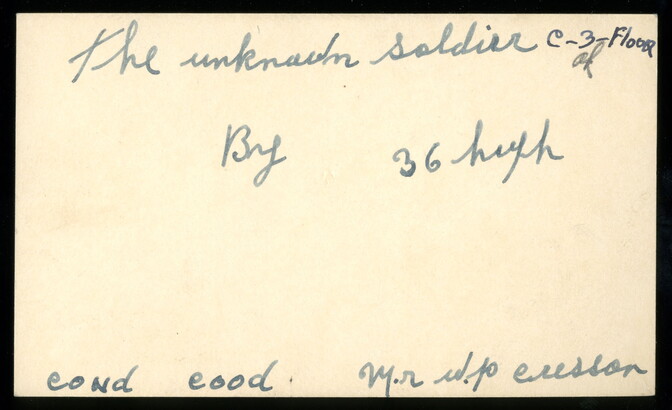 The unknown soldier C-3-Floor
By 36 high
cond cood Mr W.P cresson